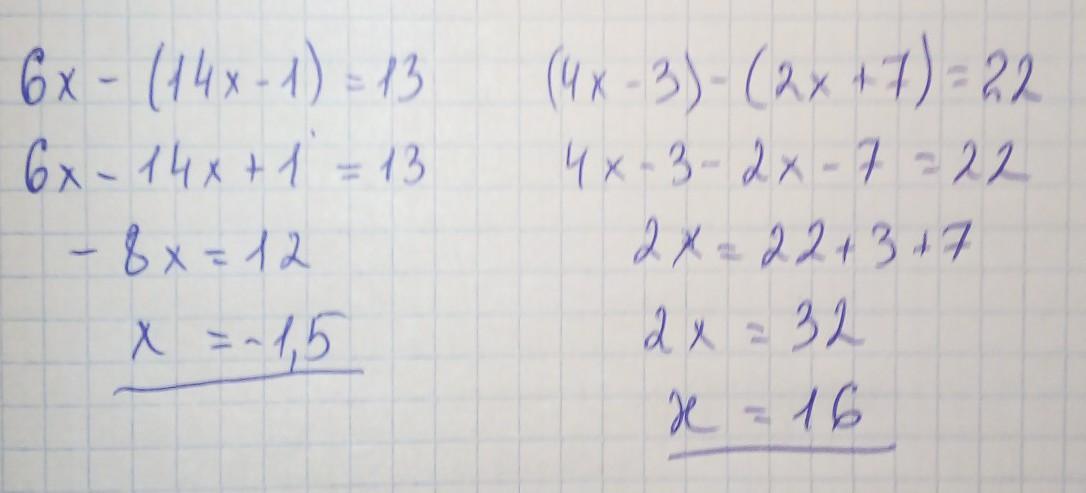 6x - (14x - 1) = 13
6x - 14x + 1 = 13
- 8x = 12
x = -1,5
(4x - 3) - (2x + 7) = 22
4x - 3 - 2x - 7 = 22
2x = 22 + 3 + 7
2x = 32
x = 16